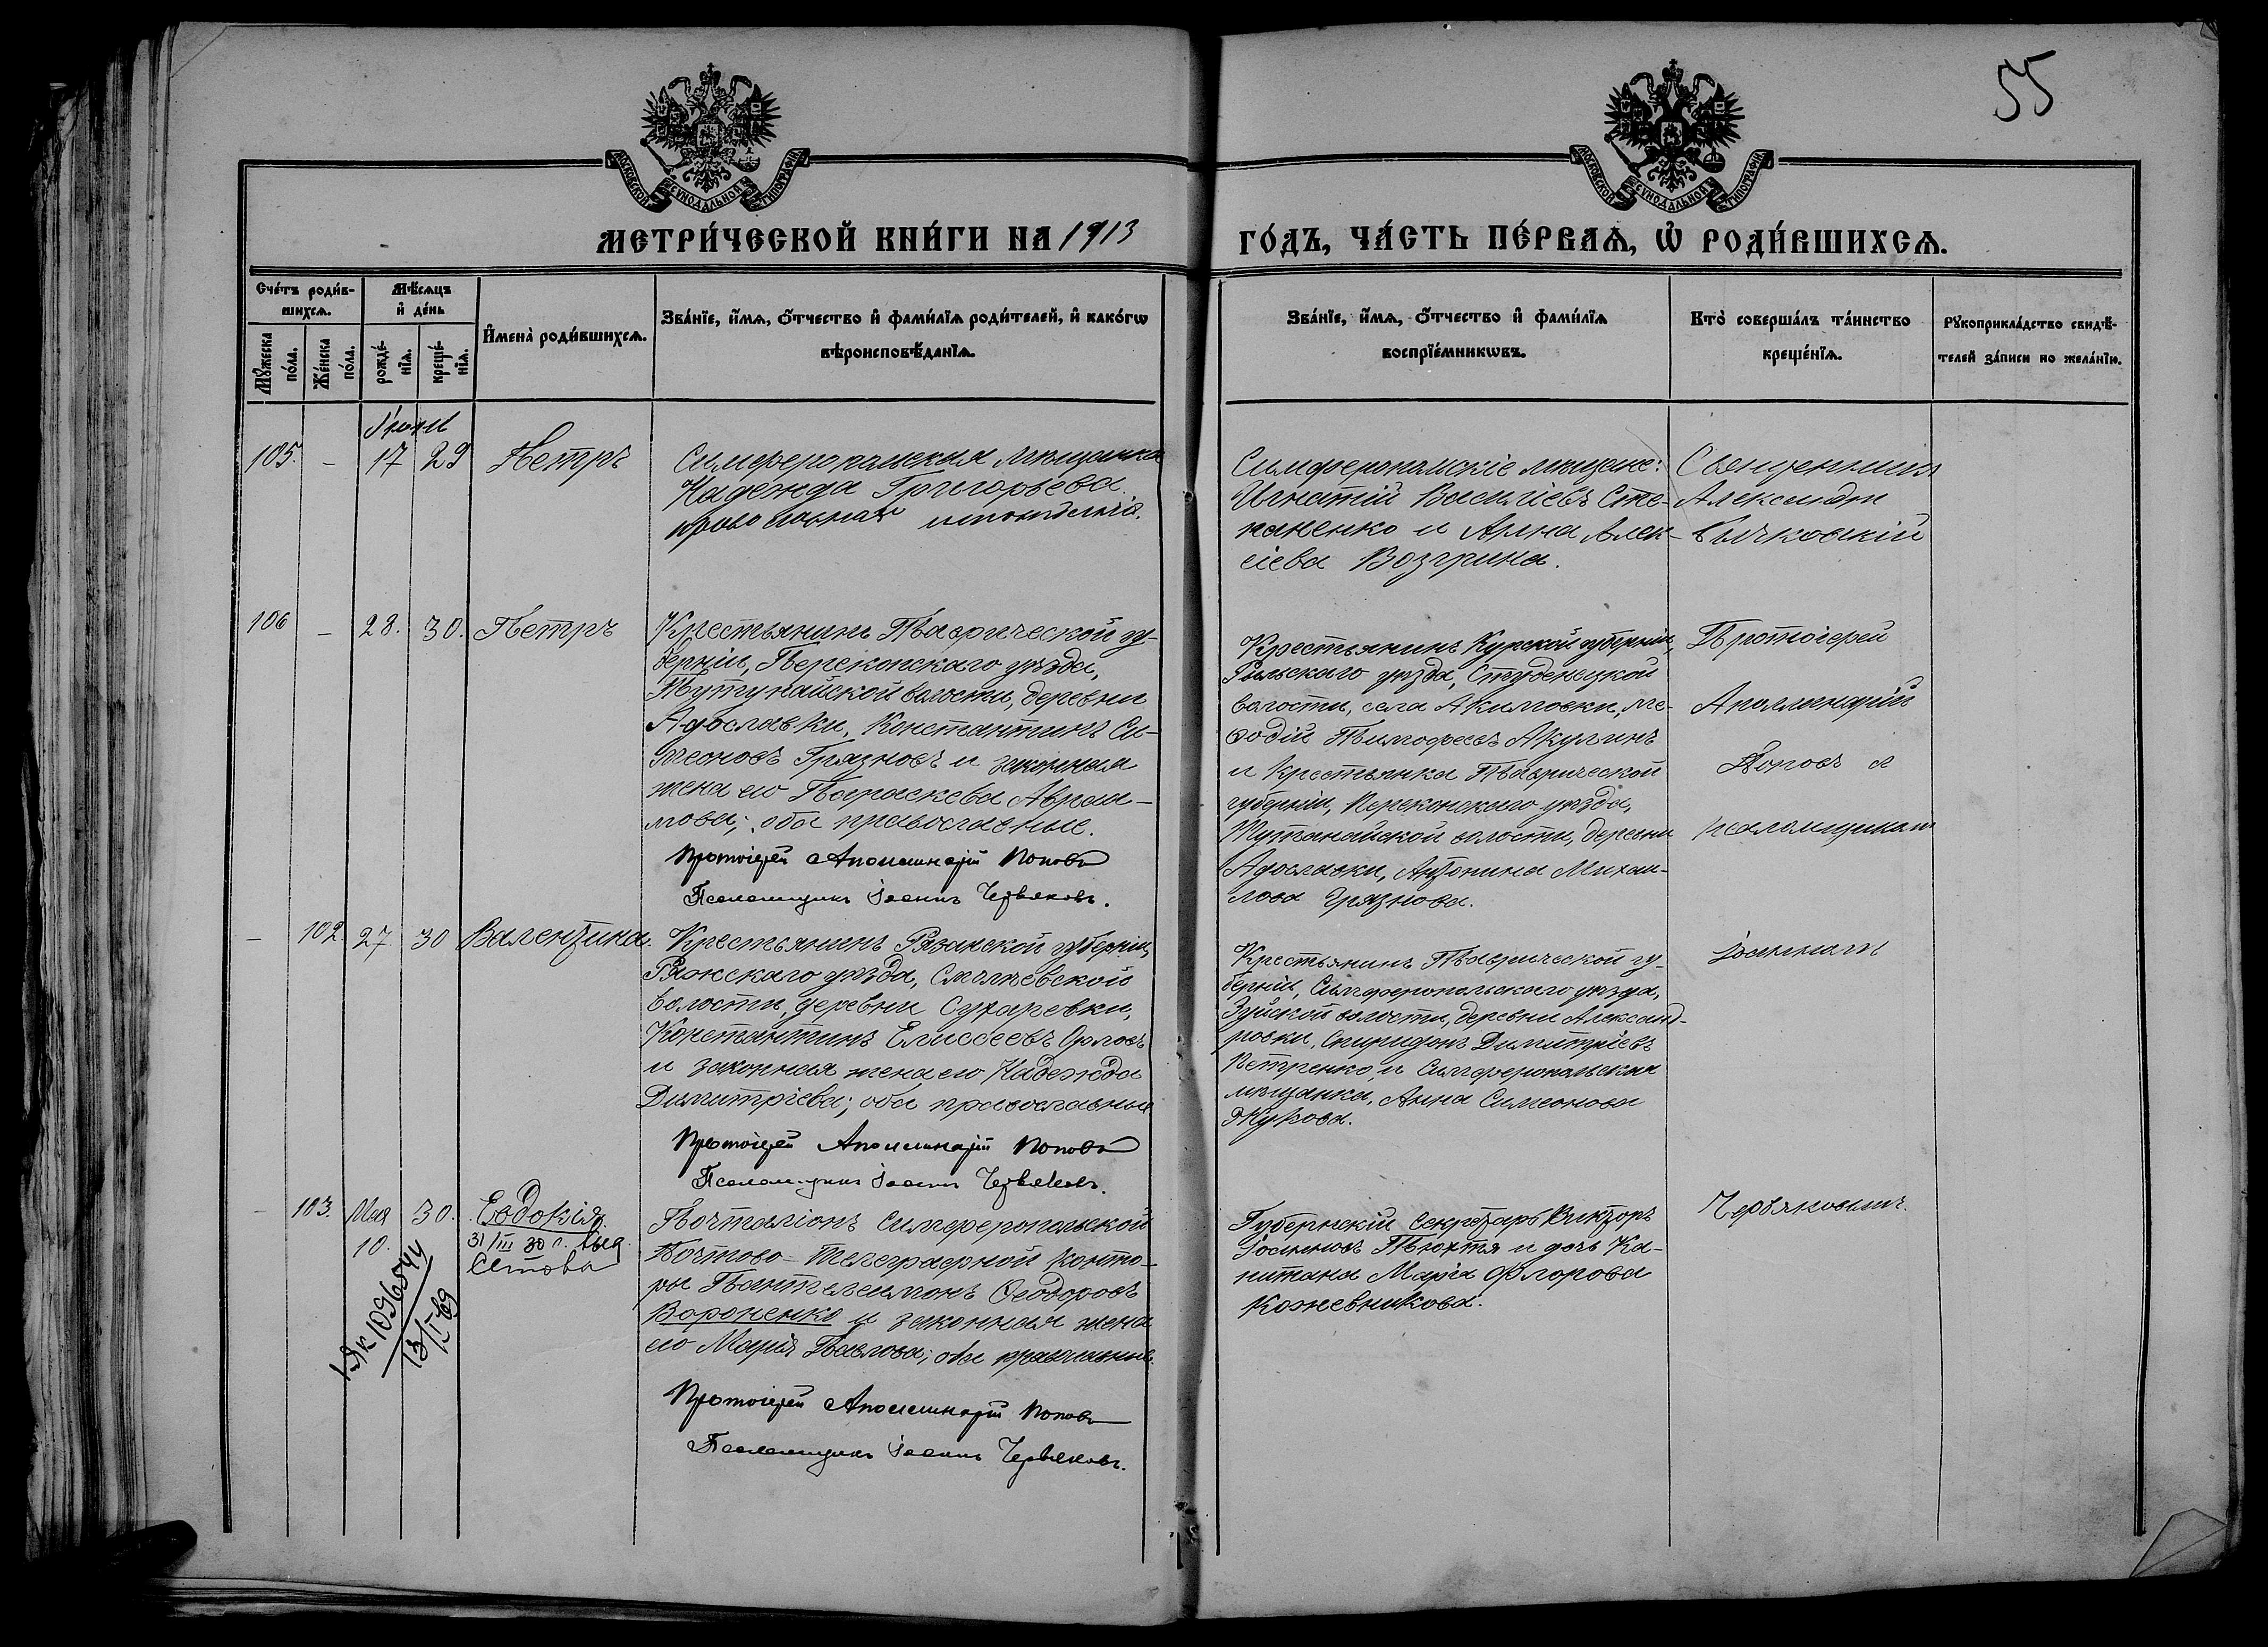 55
МОСКОВСКОЙ СѴНОДАЛЬНОЙ ТИПОГРАФІИ
МОСКОВСКОЙ СѴНОДАЛЬНОЙ ТИПОГРАФІИ
МЕТРИ́ЧЕСКОЙ КНИ́ГИ НА 1913
ГО́ДЪ, ЧА́СТЬ ПЕ́РВАѦ, Ѡ҆ РОДИ́ВШИХСѦ.
Сче́тъ роди́в-
шихсѧ.
Мꙋжеска
по́ла.
Же́нска
по́ла.
Мѣ́сѧцъ
и҆ де́нь
рожде́-
нїѧ.
креще́-
нїѧ.
И҆мена̀ роди́вшихсѧ.
Зва́нїе, и҆́мѧ, о҆́тчество и҆ фами́лїѧ роди́телей, и҆ како́гѡ
вѣроисповѣ́данїѧ.
Зва́нїе, и҆́мѧ, о҆́тчество и҆ фами́лїѧ
воспрїе́мникѡвъ.
Кто̀ соверша́лъ та́инство
креще́нїѧ.
Рꙋкоприкла́дство свидѣ́-
телей за́писи по жела́нїю.
105. – 17 29 Петръ
Симферопольская мѣщанка
Надежда Григорьева,
православнаго исповѣданія.
Симферопольскіе мѣщане:
Игнатій Василіевъ Сте-
паненко и Анна Алек-
сіева Возгрина.
Священникъ
Александръ
106 – 28. 30. Петръ
Крестьянинъ Таврической гу-
берніи, Перекопскаго уѣзда,
волости, деревни
Адославки, Константинъ Си-
меоновъ Грязновъ и законная
жена его Параскева Авраа-
мова; оба православные.
Протоіерей Аполлинарій Поповъ
Псаломщикъ Іоаннъ Червяковъ.
Крестьянинъ Курской губерніи,
Рыльскаго уѣзда, Студенецкой
волости, села Акимовки, Ме-
ѳодій Тимофеевъ Акулинъ
и крестьянка Таврической
губерніи, Перекопскаго уѣзда,
волости, деревни
Адославки, Антонина Михаи-
лова Грязнова.
Протоіерей
Аполлинарій
Поповъ с
псаломщикомъ
– 102. 27. 30 Валентина.
Крестьянинъ Рязанской губерніи,
Ряжскаго уѣзда,
волости, деревни Сухаревки,
Константинъ Елиссеевъ Орловъ
и законная жена его Надежда
Димитріева; оба православные
Протоіерей Аполлинарій Поповъ
Псаломщикъ Іоаннъ Червяковъ.
Крестьянинъ Таврической гу-
берніи, Симферопольскаго уѣзда,
Зуйской волости, деревни Александ-
ровки, Спиридонъ Димитріевъ
Петренко и Симферопольская
мѣщанка, Анна Симеонова
Жукова.
Іоанномъ
– 103. Мая 30. Евдокія.
10. 31/III 30 г. выд.
Почталіонъ Симферопольской
Почтово-Телеграфной Конто-
ры Пантелеимонъ Ѳеодоровъ
Вороненко и законная жена
его Марія Павлова; оба православные.
Протоіерей Аполлинарій Поповъ
Псаломщикъ Іоаннъ Червяковъ.
Губернскій Секретарь Викторъ
Іоанновъ Тюхтя и дочь Ка-
питана Марія Флорова
Кожевникова.
Червяковымъ.